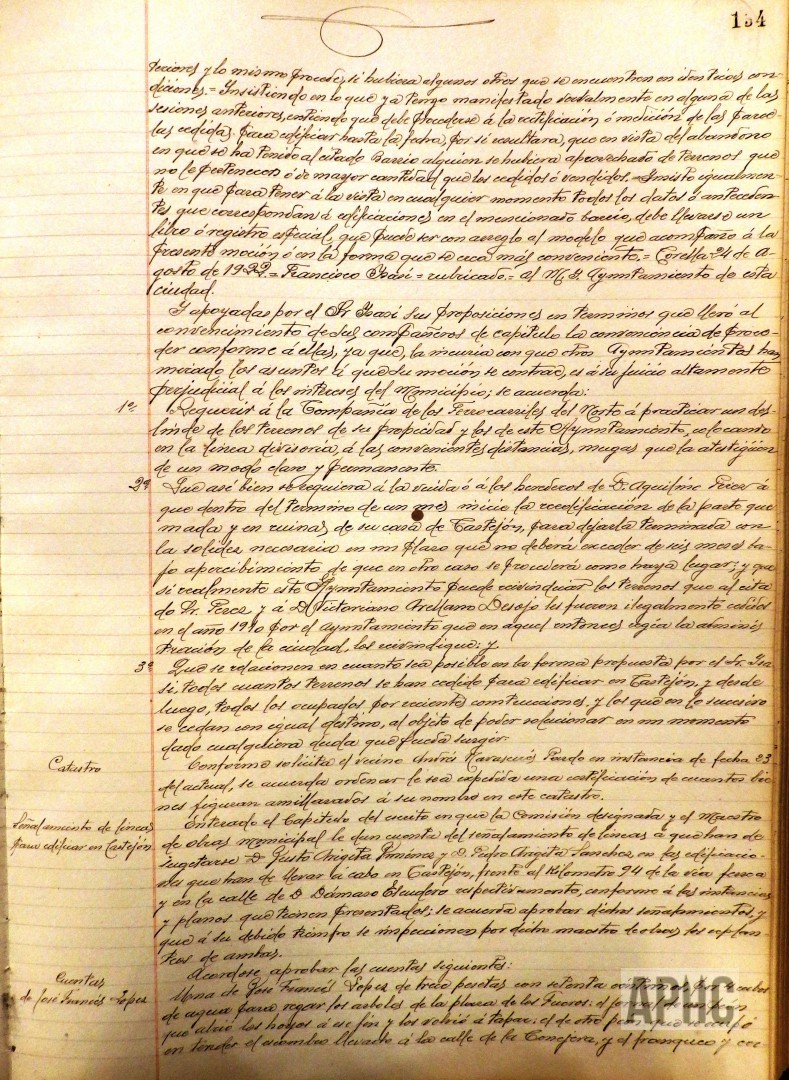 134
teriores y lo mismo procede, si hubiera algunos otros que se encuentren en identicas con-
diciones.= Insistiendo en lo que ya tengo manifestado verbalmente en alguna de las
sesiones anteriores, entiendo que debe procederse á la rectificación ó medición de las parce-
las cedidas para edificar hasta la fecha, por si resultara, que en vista del abandono
en que se ha tenido al citado Barrio alguien se hubiera aprovechado de terrenos que
no le pertenecen ó de mayor cantidad que los cedidos ó vendidos.= Insisto igualmen-
te en que para tener á la vista en cualquier momento todos los datos ó anteceden-
tes que correspondan á edificaciones en el mencionado barrio, debe llevarse un
libro ó registro especial, que puede ser con arreglo al modelo que acompaño á la
presente moción ó en la forma que se crea más conveniente.= Corella 24 de A-
gosto de 1922.= Francisco Isasi= rubricado.= Al M. I. Ayuntamiento de esta
ciudad.
Y apoyadas por el Sr. Isasi sus proposiciones en terminos que llevó al
convencimiento de sus compañeros de capitulo la conveniencia de proce-
der conforme á ellas, ya que, la incuria con que otros Ayuntamientos han
mirado los asuntos á que su moción se contrae, es á su juicio altamente
perjudicial á los intereses del Municipio; se acuerda:
1º Requerir á la Compañía de los Ferrocarriles del Norte á practicar un des-
linde de los terrenos de su propiedad y los de este Ayuntamiento, colocando
en la línea divisoria, á las convenientes distancias, mugas que la atestigüen
de un modo claro y permanente.
2º Que así bien se requiera á la viuda ó á los herederos de D. Aquilino Perez á
que dentro del termino de un mes inicie la reedificación de la parte que
mada y en ruinas, de su casa de Castejón, para dejarla terminada con
la solidez necesaria en un plazo que no deberá exceder de seis meses ba-
jo apercibimiento de que en otro caso se procederá como haya lugar; y que
si realmente este Ayuntamiento puede reivindicar los terrenos que al cita
do Sr. Perez y á D. Victoriano Arellano Desojo les fueron ilegalmente cedidos
en el año 1910 por el Ayuntamiento que en aquel entonces regia la adminis
tración de la ciudad, los reivindique; y
3º Que se relacionen en cuanto sea posible en la forma propuesta por el Sr. Isa
si, todos cuantos terrenos se han cedido para edificar en Castejón, y desde
luego, todos los ocupados por recientes construcciones y los que en lo sucesivo
se cedan con igual destino, al objeto de poder solucionar en un momento
dado cualquiera duda que pueda surgir.
Catastro
Conforme solicita el vecino Andrés Navascués Pardo en instancia de fecha 23
del actual, se acuerda ordenar le sea expedida una certificación de cuantos bie-
nes figuran amillarados á su nombre en este catastro.
Señalamiento de líneas
para edificar en Castejón
Enterado el Capitulo del escrito en que la Comisión designada y el Maestro
de obras municipal le dan cuenta del señalamiento de líneas á que han de
sugetarse D. Justo Angita Jiménez y D. Pedro Angita Sanchez, en las edificacio-
nes que han de llevar á cabo en Castejón, frente al kilometro 94 de la via ferrea
y en la calle de D. Dámaso Escudero respectivamente, conforme á las instancias
y planos que tienen presentados; se acuerda aprobar dichos señalamientos, y
que á su debido tiempo se inspeccionen por dicho maestro de obras, los replan-
teos de ambas.
Cuentas
de José Francés Lopez
Acordose aprobar las cuentas siguientes:
Una de José Francés Lopez de trece pesetas con setenta centimos por 4 cubos
de agua para regar los arboles de la plaza de los Fueros; el jornal de un peón
que abrió los hoyos á ese fin y los volvió á tapar; el de otro peon que se ocupó
en tender el escombro llevado á la calle de la Conejera, y el franqueo y
APHC